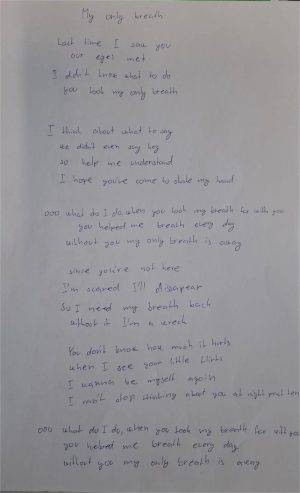 My only breath
Last time I saw you
our eyes met
I didn't know what to do
you took my only breath
I think about what to say
we didn't even say hey
so help me understand
I hope you've come to shake my hand
ooo what do I do, when you took my breath far with you
you helped me breath every day
without you my only breath is away
since you're not here
I'm scared I'll disapear
So I need my breath back
without it I'm a wreck
You don't know how much it hurts
when I see your little flirts
I wanna be myself again
I can't stop thinking about you at night past ten
ooo what do I do, when you took my breath far with you
you helped me breath every day
without you my only breath is away